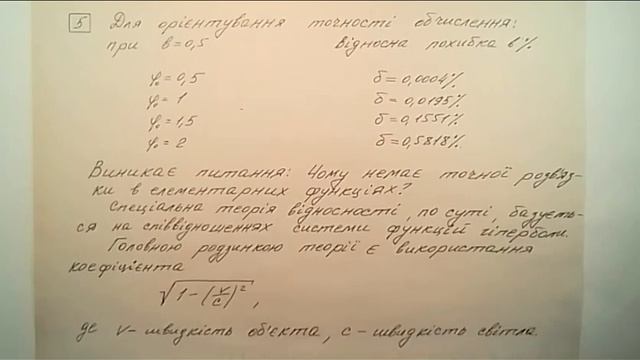 5 Для орієнтування точності обчислення:
при в=0,5 відносна похибка в %
φ₀=0,5 δ=0,0004%
φ₀=1 δ=0,0195%
φ₀=1,5 δ=0,1551%
φ₀=2 δ=0,5818%
Виникає питання: Чому немає точної розв'яз-
ки в елементарних функціях?
Спеціальна теорія відносності, по суті, базуєть-
ся на співвідношеннях системи функцій гіперболи.
Головною родзинкою теорії є використання
коефіцієнта
√(1-(v/c)²),
де v - швидкість об'єкта, c - швидкість світла.